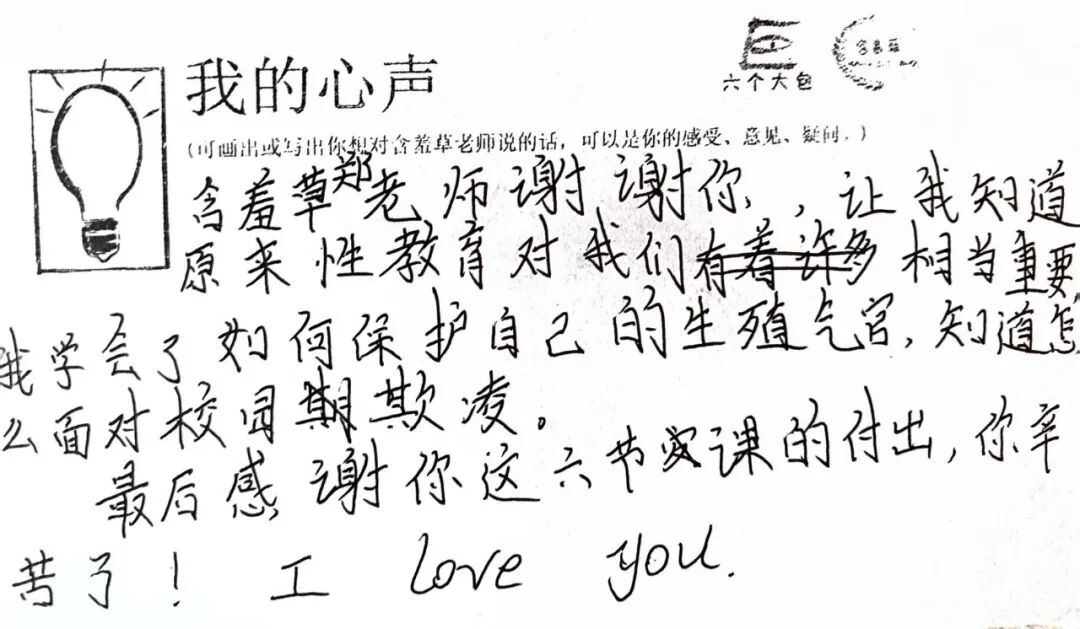 六个大包
我的心声
(可画出或写出你想对含羞草老师说的话，可以是你的感受、意见、疑问。)
含羞草郑老师谢谢你，让我知道
原来性教育对我们有着许多相当重要
我学会了如何保护自己的生殖气官，知道怎
么面对校园期欺凌。
最后感谢你这六节课的付出，你辛
苦了！ I love you.